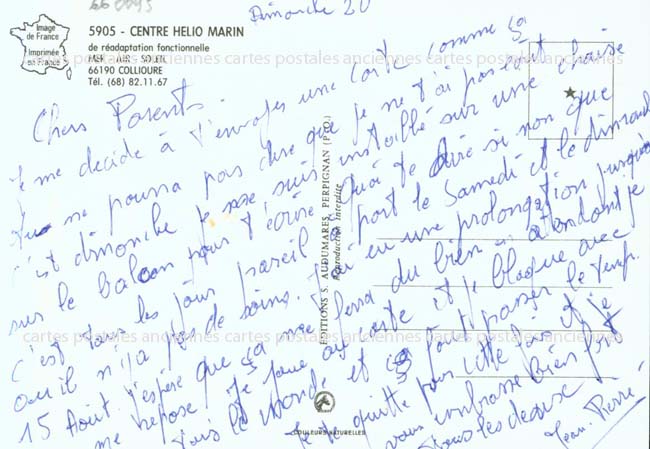 66 0095
Dimanche 20
Image
de France
Imprimée
en France
5905 - CENTRE HELIO MARIN
de réadaptation fonctionnelle
MER AIR SOLEIL
66190 COLLIOURE
Tél. (68) 82.11.67
cartes postales anciennes cartes postales anciennes cartes postales anciennes
Chers Parents
Je me decide à t'envoyer une carte comme ça
tu me pourra pas dire que je ne t'ai pas écrit
c'est dimanche je me suis installé sur une chaise
sur le balcon pour t'écrire quoi te dire si non que
c'est tous les jours pareil à part le Samedi et le dimanche
ou il n'y a pas de soins. J'ai eu une prolongation jusqu'au
15 Août j'espère que ça me fera du bien attendant je
me repose je joue au et je blague avec
tous le monde et ça fait passer le temps.
Je te quitte pour cette fois et je
vous embrasse bien fort
tous les deux
Jean-Pierre
EDITIONS S. AUDUMARES, PERPIGNAN (P.-O.)
Reproduction interdite
cartes postales anciennes cartes postales anciennes cartes postales anciennes
COULEURS NATURELLES